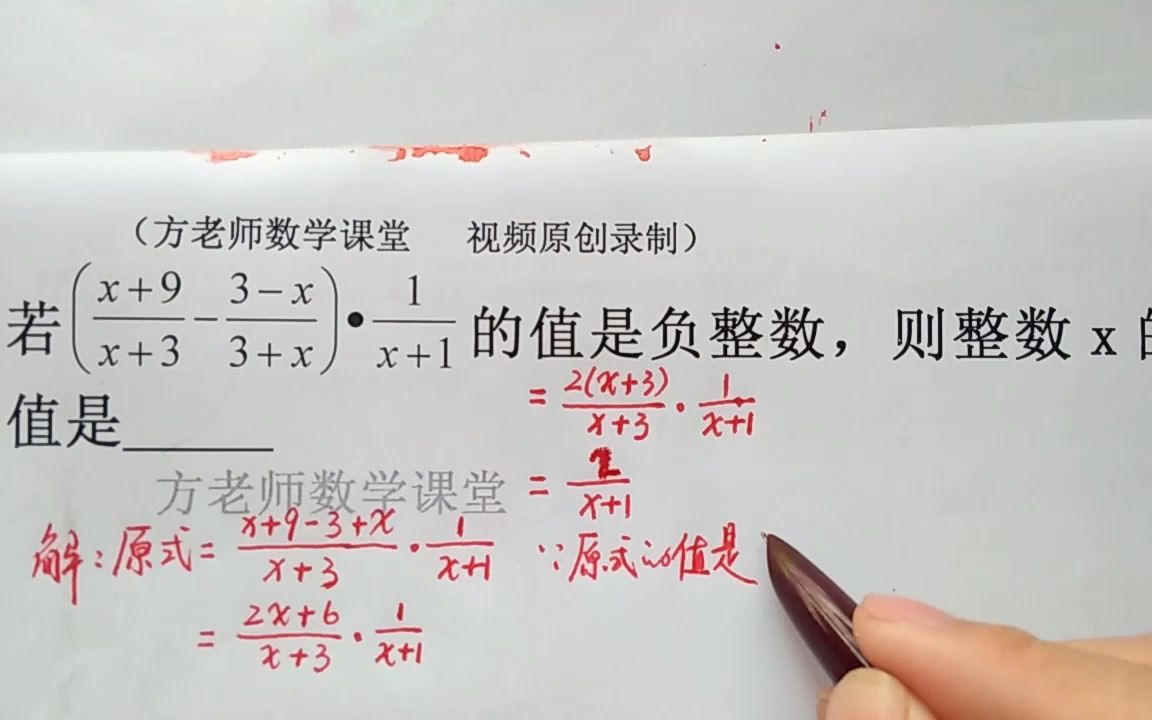 （方老师数学课堂 视频原创录制）
若(x+9/x+3 − 3−x/3+x)•1/x+1的值是负整数，则整数 x
值是______
方老师数学课堂
解：原式= x+9-3+x/x+3 · 1/x+1
= 2x+6/x+3 · 1/x+1
= 2(x+3)/x+3 · 1/x+1
= 2/x+1
∵原式的值是